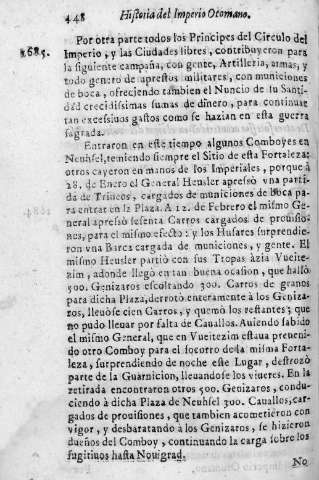 448 Historia del Imperio Otomano.
1685. Por otra parte todos los Principes del Circulo del
Imperio, y las Ciudades libres, contribuyeron para
la siguiente campaña, con gente, Artilleria, armas, y
todo genero de aprestos militares, con municiones
de boca, ofreciendo tambien el Nuncio de su Santi-
dad crecidissimas sumas de dinero, para continuar
tan excessiuos gastos como se hazian en esta guerra
sagrada.
Entraron en este tiempo algunos Comboyes en
Neuhsel, temiendo siempre el Sitio de esta Fortaleza:
otros cayeron en manos de los Imperiales, porque à
28. de Enero el General Heusler apresò vna parti-
da de Trineos, cargados de municiones de boca pa-
ra entrar en la Plaza. A 12. de Febrero el mismo Ge-
neral apresò sesenta Carros cargados de prouisio-
nes, para el mismo efecto: y los Husares surprendie-
ron vna Barca cargada de municiones, y gente. El
mismo Heusler partiò con sus Tropas àzia Vueite-
zim, adonde llegò en tan buena ocasion, que hallò
500. Genizaros escoltando 300. Carros de granos
para dicha Plaza, derrotò enteramente à los Geniza-
ros, lleuòse cien Carros, y quemò los restantes; que
no pudo lleuar por falta de Cauallos. Auiendo sabido
el mismo General, que en Vueitezim estaua preueni-
do otro Comboy para el socorro de la misma Forta-
leza, surprendiendo de noche este Lugar, destrozò
parte de la Guarnicion, lleuandose los viueres. En la
retirada encontraron otros 500. Genizaros, condu-
ciendo à dicha Plaza de Neuhsel 300. Cauallos, car-
gados de prouisiones, que tambien acometieron con
vigor, y desbaratando à los Genizaros, se hizieron
dueños del Comboy, continuando la carga sobre los
fugitiuos hasta Nouigrad.
No